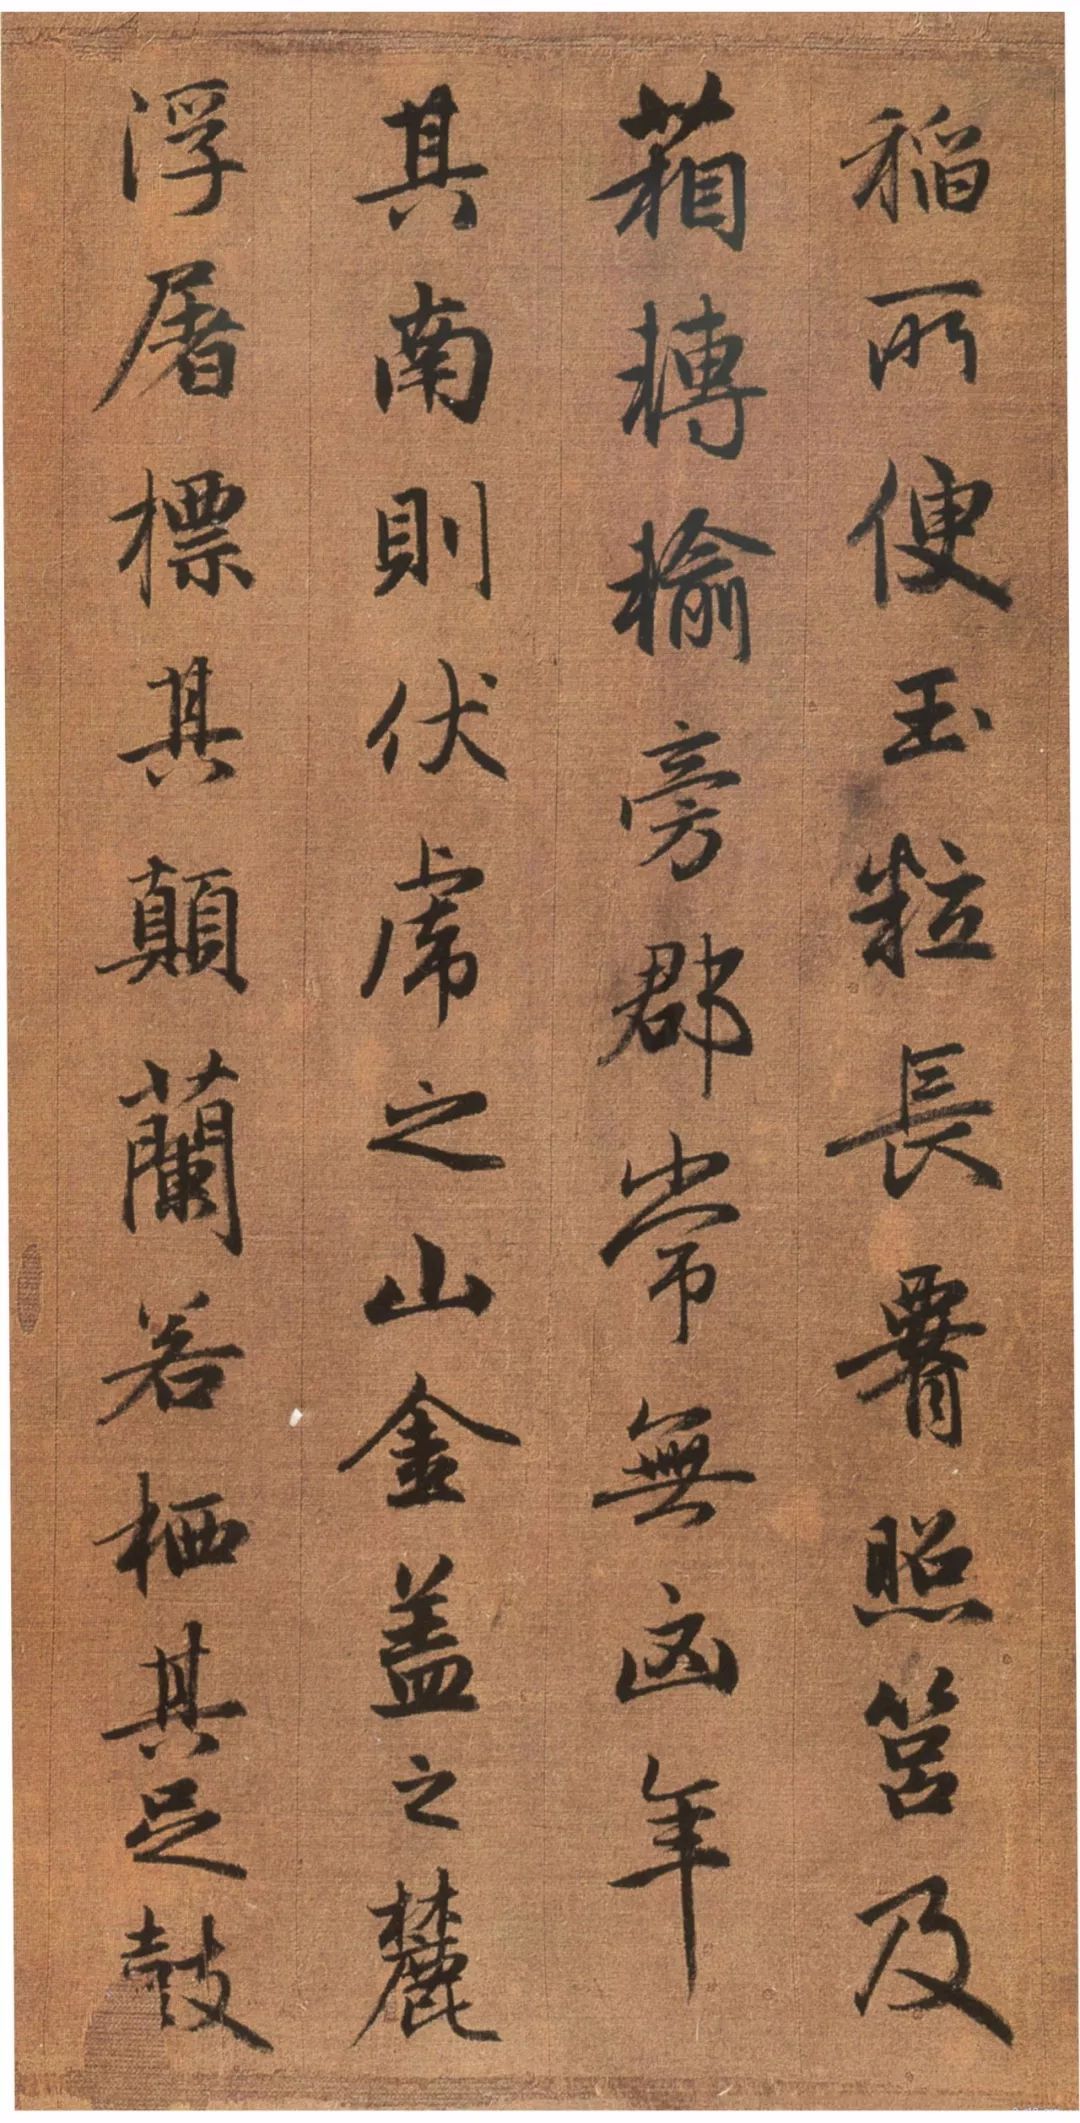 稲所便玉粒長腰照筥及
箱轉輸旁郡常無凶年
其南則伏虎之山金盖之麓
浮屠標其顛蘭若栖其足鼓